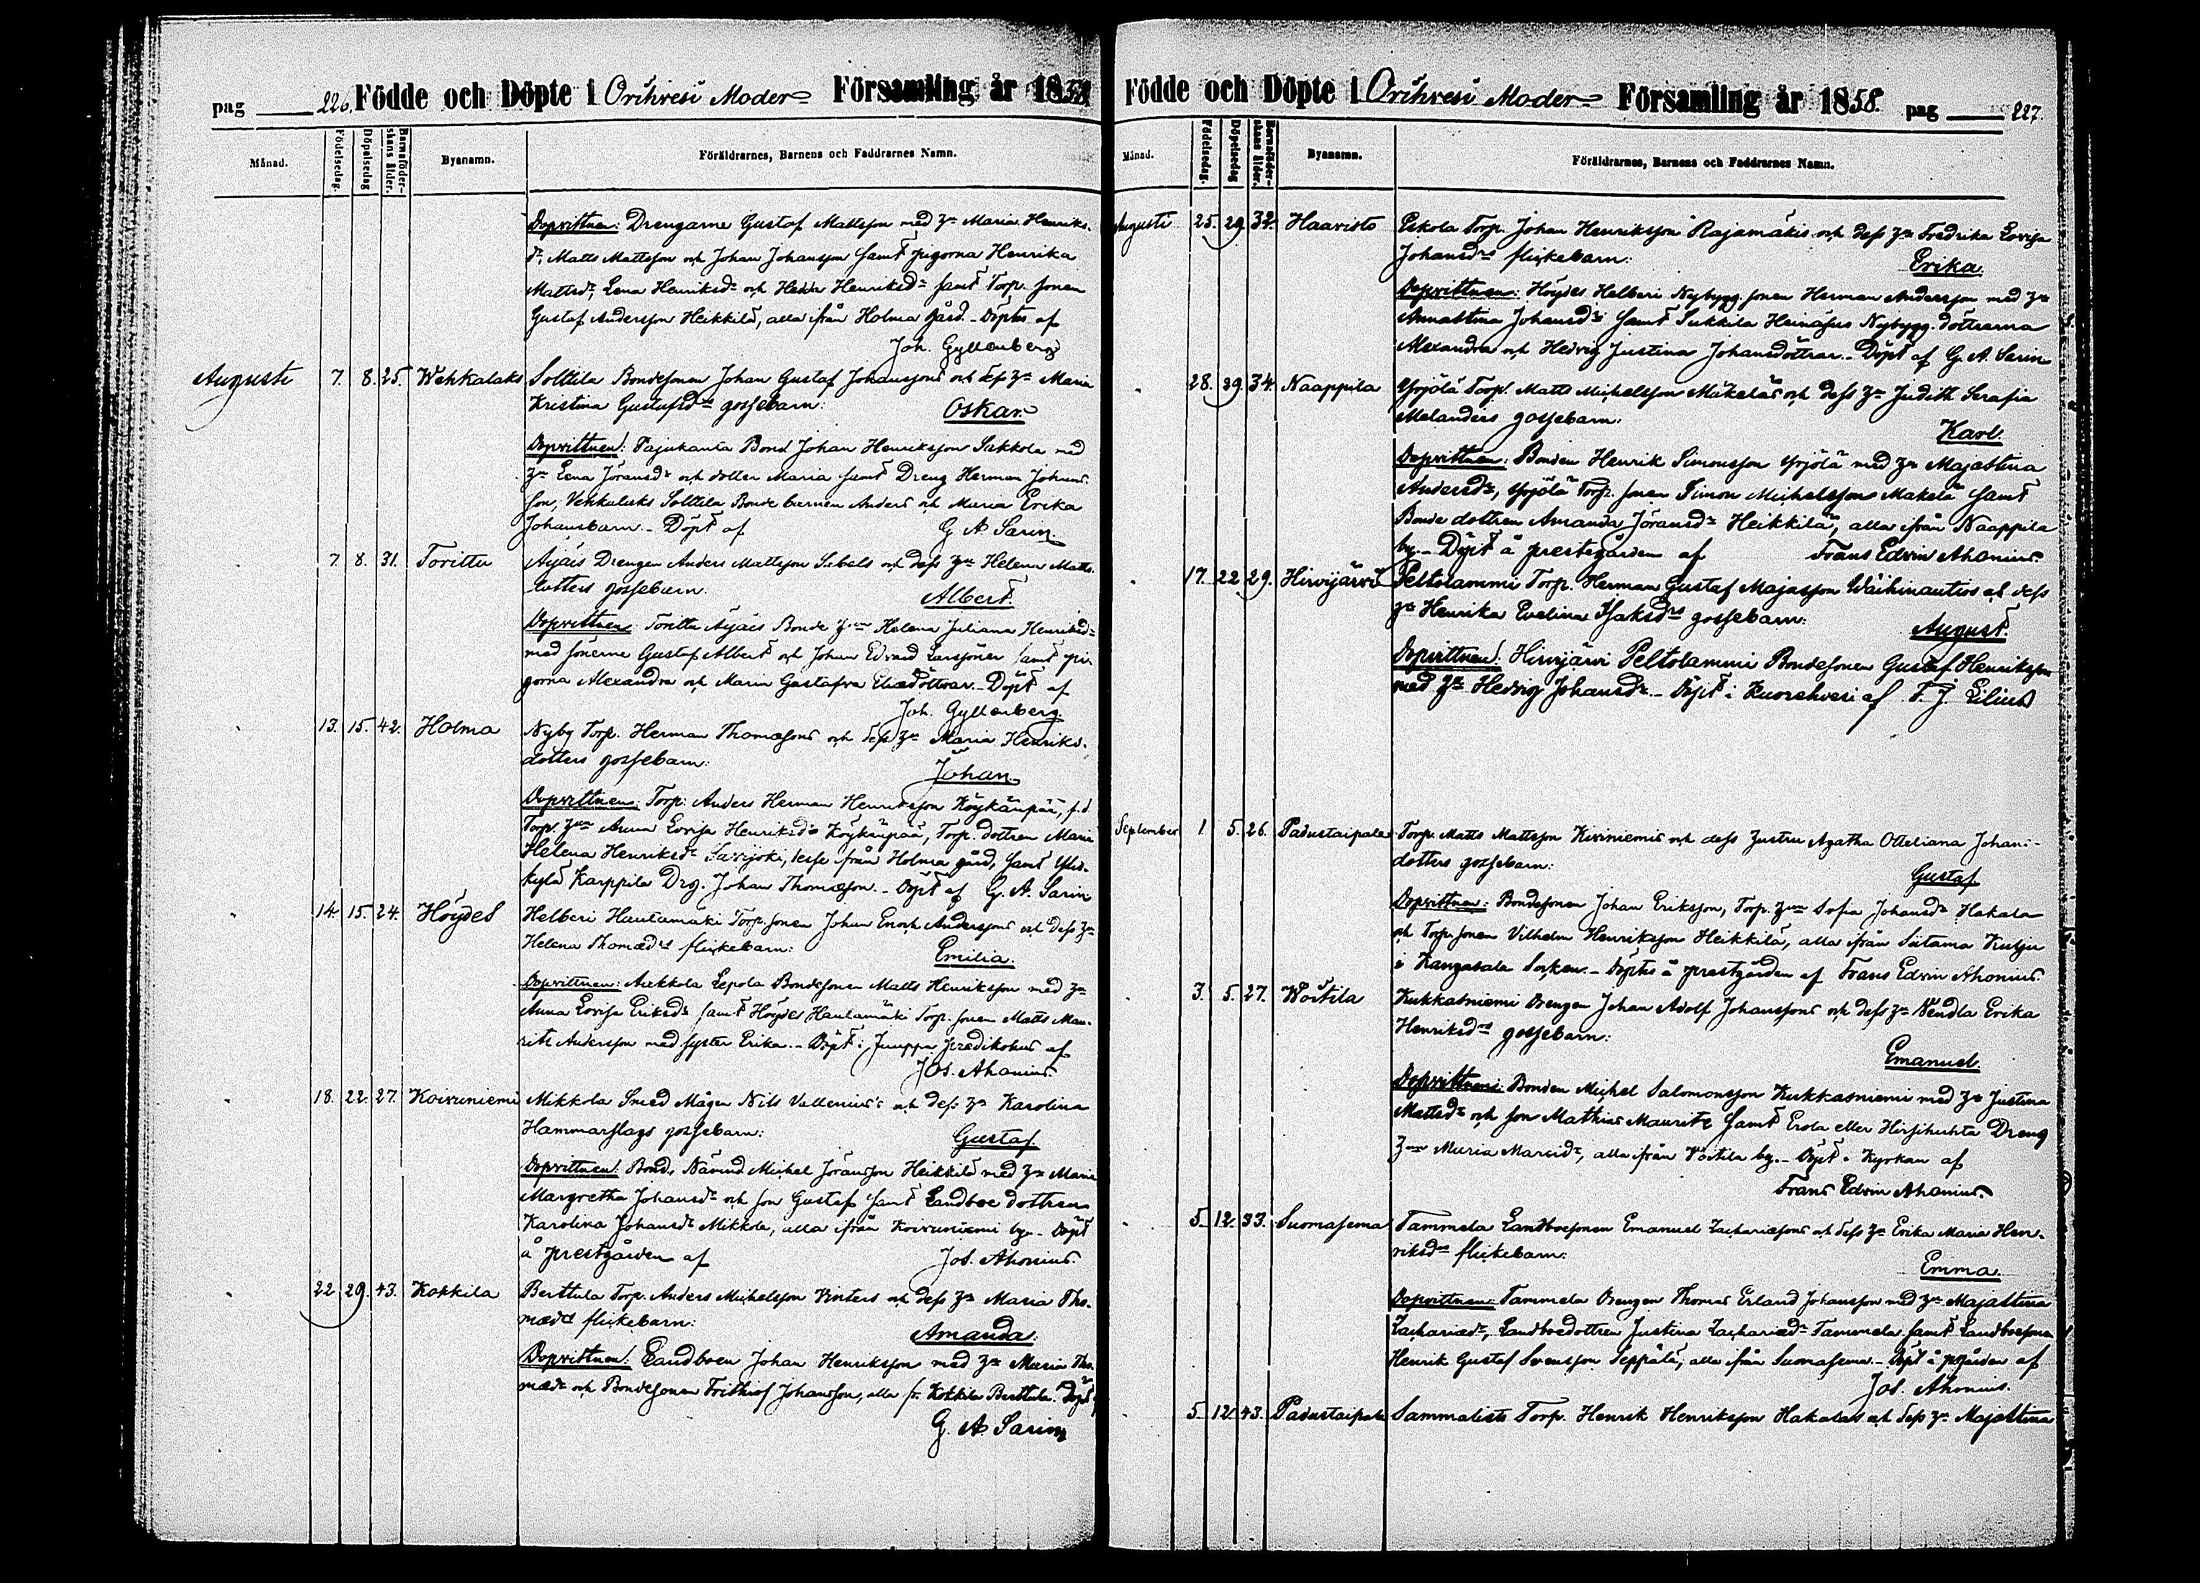 pag 226. Födde och Döpte i Orihvesi Moder- Församling år 1858
Månad. Födelsedag. Döpelsedag Barnaföderskans ålder. Byanamn. Föräldrarnes, Barnens och Faddrarnes Namn.
Dopvittnen: Drengarne Gustaf Mattsson med hu Maria Henriks-
dr, Matts Mattsson och Johan Johansson samt pigorna Henrika
Mattsdr, Lena Henriksdr och Hedda Henriksdr samt Torp. sonen
Gustaf Andersson Heikkilä, alla ifrån Holma gård. Döptes af
Joh. Gyllenberg
Augusti 7. 8. 25. Wehkalaks Solttila Bondesonen Johan Gustaf Johanssons och dess hu Maria
Kristina Gustafsdrs gossebarn: Oskar.
Dopvittnen: Pajukanta Bond Johan Henriksson Sakkola med
hu Lena Göransdr och dotter Maria samt Dreng Herman Johans-
son, Vehkalaks Solttila Bonde barnen Anders och Maria Erika
Johansbarn. Döpt af G A Sarin.
7. 8. 31. Torittu Äijäis Drengen Anders Mattsson Sibels och dess hu Helena Matts-
dotters gossebarn: Albert.
Dopvittnen: Torittu Äijäis Bonde hun Helena Juliana Henriksdr
med sönerne Gustaf Albert och Johan Edvard Larssöner samt pi-
gorna Alexandra och Maria Gustafva Eliædöttrar. Döpt af
Joh. Gyllenberg.
13. 15. 42. Holma Nyby Torp. Herman Thomassons och dess hu Maria Henriks-
dotters gossebarn: Johan.
Dopvittnen: Torp. Anders Herman Henriksson Köykänpää, f.d.
Torp. hun Anna Lovisa Henriksdr Köykänpää, Torp. dottren Maria
Helena Henriksdr Savijoki, desse från Holma gård, samt Ylis-
kylä Karppila Drg. Johan Thomasson. Döpt af G. A. Sarin
14. 15. 24. Höydes Helberi Hautamäki Torp. sonen Johan Enoch Anderssons och dess hu
Helena Thomædrs flickebarn: Emilia.
Dopvittnen: Aukkola Lepola Bondesonen Matts Henriksson med hu
Anna Lovisa Eriksdr samt Höydes Hautamäki Torp. sonen Matts Mau-
ritz Andersson med syster Erika. Döpt i Juuppa predikohus af
Jos. Ahonius.
18. 22. 27. Koivuniemi Mikkola Smed Mågen Nils Vallenius's och dess hu Karolina
Hammarslags gossebarn: Gustaf.
Dopvittnen: Bond. Nämnd Michel Göransson Heikkilä med hu Maria
Margretha Johansdr och son Gustaf samt Landboe dottren
Karolina Johansdr Mikkola, alla ifrån Koivuniemi by. Döpt
å prestgården af Jos. Ahonius.
22. 29. 43. Kokkila Berttula Torp. Anders Michelsson Vinters och dess hu Maria Tho-
mædrs flickebarn: Amanda.
Dopvittnen: Landboen Johan Henriksson med hu Maria Tho-
mædr och Bondesonen Frithiof Johansson, alla fr. Kokkila Berttula. Döpt af
G. A. Sarin
Födde och Döpte i Orihvesi Moder- Församling år 1858. pag 227.
Månad. Födelsedag. Döpelsedag Barnaföderskans ålder. Byanamn. Föräldrarnes, Barnens och Faddrarnes Namn.
Augusti 25. 29. 32. Haavisto Eskola Torp. Johan Henriksson Rajamäkis och dess hu Fredrika Lovisa
Johansdrs flickebarn: Erika.
Dopvittnen: Höydes Helberi Nybygg. sonen Herman Andersson med hu
Annastina Johansdr samt Sukkila Heinäsus Nybygg. döttrarna
Alexandra och Hedvig Justina Johansdöttrar. Döpt af G. A. Sarin
28. 29. 34. Naappila Yrjölä Torp. Matts Michelsson Mäkeläs och dess hu Judith Serafia
Melanders gossebarn: Karl.
Dopvittnen: Bonden Henrik Simonsson Yrjölä med hu Majastina
Andersdr, Yrjölä Torp. sonen Simon Michelsson Mäkelä samt
Bonde dottren Amanda Göransdr Heikkilä, alla ifrån Naappila
by. Döpt å prestgården af Frans Edvin Ahonius.
17. 22. 29. Hirvijärvi Peltolammi Torp. Herman Gustaf Majasson Wäihinautios och dess
hu Henrika Evelina Isaksdrs gossebarn: August.
Dopvittnen: Hirvijärvi Peltolammi Bondesonen Gustaf Henriksson
med hu Hedvig Johansdr. Döpt i Kuorehvesi af F. J. Lilius
September 1. 5. 26. Padustaipale Torp. Matts Mattsson Kiviniemis och dess hustru Agatha Otteliana Johans-
dotters gossebarn: Gustaf
Dopvittnen: Bondesonen Johan Eriksson, Torp. hun Sofia Johansdr Hakala
och Torp. sonen Vilhelm Henriksson Heikkilä, alla ifrån Siitama Kutju
i Kangasala Socken. Döptes å prestgården af Frans Edvin Ahonius.
3. 5. 27. Woitila Kukkasniemi Drengen Johan Adolf Johanssons och dess hu Vendla Erika
Henriksdrs gossebarn: Emanuel.
Dopvittnen: Bonden Michel Salomonsson Kukkasniemi med hu Justina
Mattsdr och son Mathias Mauritz samt Erola eller Hirsihuhta Dreng
hun Maria Marcidr, alla ifrån Voitila by. Döpt i Kyrkan af
Frans Edvin Ahonius.
5. 12. 33. Suomasema Tammela Landboesonen Emanuel Zachariæsons och dess hu Erika Maria Hen-
riksdrs flickebarn: Emma.
Dopvittnen: Tammela Drengen Thomas Erland Johansson med hu Majastina
Zachariædr, Landboedottren Justina Zachariædr Tammela samt Landboesonen
Henrik Gustaf Svensson Seppälä, alla ifrån Suomasema. Döpt å pgården af
Jos. Ahonius.
5. 12. 43. Padustaipale Sammalisto Torp. Henrik Henriksson Hakalas och dess hu Majastina